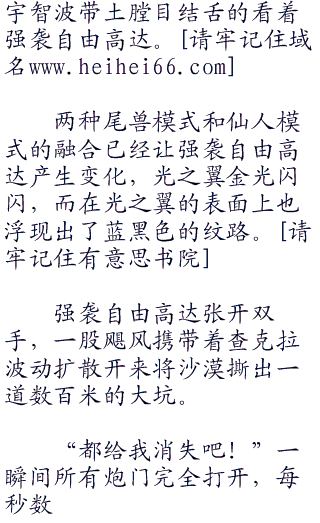 宇智波带土膛目结舌的看着
强袭自由高达。[请牢记住域
名www.heihei66.com]
两种尾兽模式和仙人模
式的融合已经让强袭自由高
达产生变化，光之翼金光闪
闪，而在光之翼的表面上也
浮现出了蓝黑色的纹路。[请
牢记住有意思书院]
强袭自由高达张开双
手，一股飓风携带着查克拉
波动扩散开来将沙漠撕出一
道数百米的大坑。
“都给我消失吧！”一
瞬间所有炮门完全打开，每
秒数